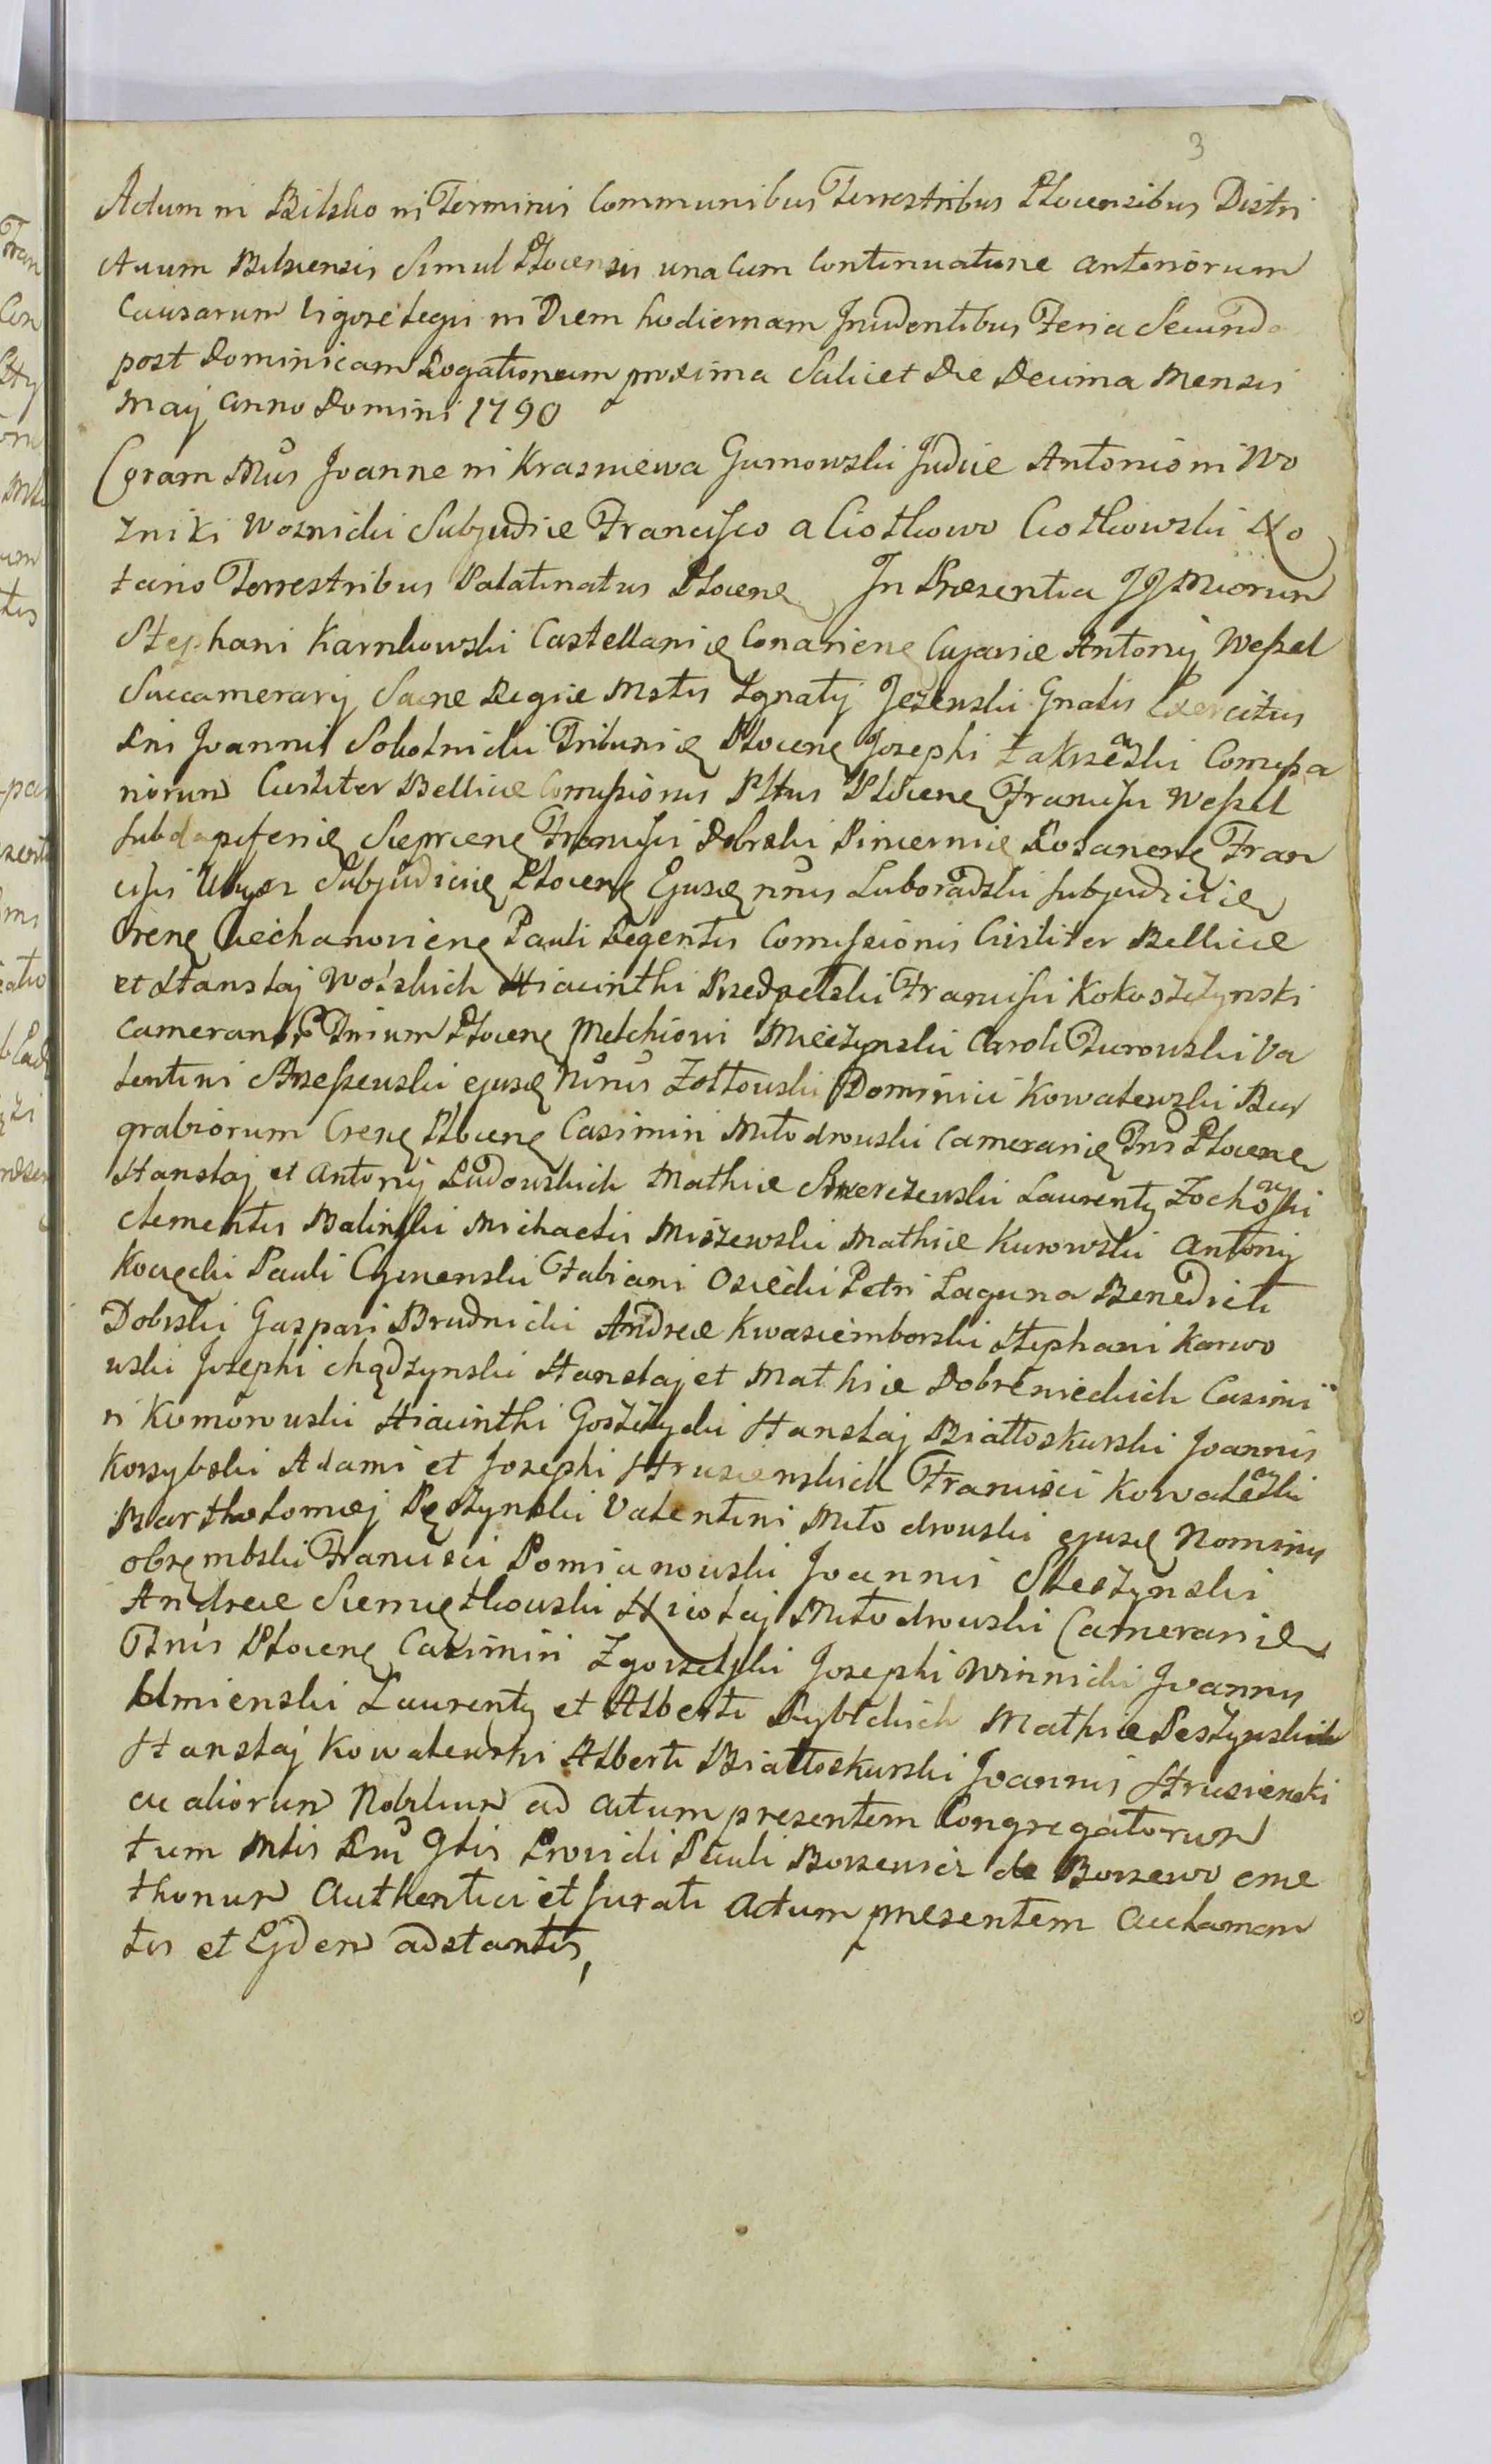 3
Actum in Bilsko in Terminis Communibus Terrestribus Plocensibus Distri
ctuum Bilscensis Simul Plocensis una Cum Continuatione anteriorum
Causarum Vigore Legis in Diem hodiernam Incidentibus Feria Secunda
post Dominicam Rogationum proxima Scilicet Die Decima Mensis
Maij Anno Domini 1790
Coram Mcis Joanne in Krasniewa Gumowski Judice Antonio in Wo
zniki Woznicki Subjudice Francisco a Ciotkowo Ciotkowski No
tario Terrestribus Palatinatus Plocen In Presentia JJ Mcorum
Stephani Karnkowski Castellanic Conarien Cujavie Antonij Weſsel
Succamerarij Sacre Regie Mtis Ignatij Jezewski Gnalis Exercitus
Joannis Sokolnicki Tribunic Plocen Josephi Zakrzewski Comiſsa
riorum Civiliter Bellice Comiſsionis Pltus Plocen Francisci Weſsel
Subdapiferic Sieprcen Francisci Dobrski Pincernic Rozanen Fran
cisci Subjudicic Plocen Ejusd nris Luboradzki Subjudicic
Tren Ciechanovien Pauli Regentis Comiſsionis Civiliter Bellice
et Stanslaj Wolskich Hiacinthi Przedpelski Francisci Kokoszczynski
Camerar Trium Plocen Melchioris Mieczynski Caroli Zurowski Va
lentini ejusd Nris Zołtowski Dominici Kowalewski Bur
grabiorum Cren Plocen Casimiri Miłodrowski Cameraric Tris Plocen
Stanslaj et Antonij Ludowskich Mathie Swierczewski Laurentij Zochowski
Clementis Balinski Michaelis Miszewski Mathie Kurowski Antonij
Kocięcki Pauli Cymenski Fabiani Osiecki Petri Laguna Benedicti
Dobrski Gaspari Brudnicki Andree Kwasiemborski Stephani Karwo
wski Josephi Chądzynski Stanslaj et Mathie Dobrenieckich Casimi
ri Komorowski Hiacinthi Goszczycki Stanslaj Białłoskurski Joannis
Korzybski Adami et Josephi Strusienskich Francisci Kowalewski
Bartholomej Pęczynski Valentini Miłodrowski ejusd Nominis
Obrembski Francisci Pomianowski Joannis Sleszynski
Andree Siemiętkowski Nicolaj Miłodrowski Camerarie
Tris Plocen Casimiri Zgorzelski Josephi Winnicki Joannis
Ulmienski Laurentij et Alberti Rybickich Mathie Peszynskich
Stanslaj Kowalewski Alberti Białłoskurski Joannis Strusienski
ac aliorum Nobilium ad actum presentem Congregatorum
tum Mtis Gtis Providi Pauli Borzewicz de Borzewo cme
thonum Authentici et Jurati Actum presentem Acclaman
tis et Ejdem adstantis,